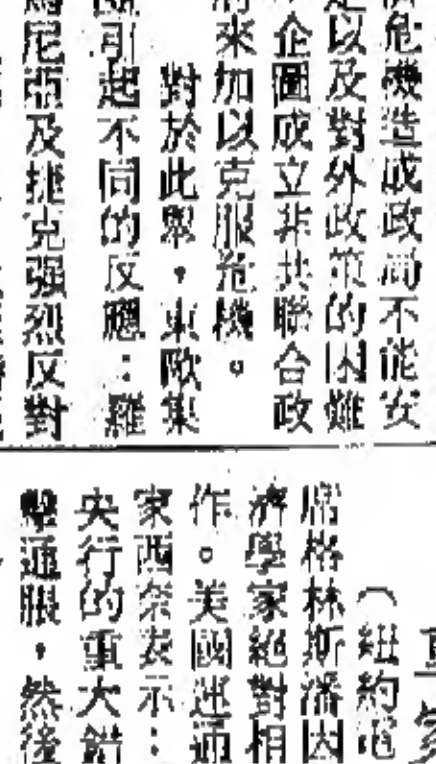 危機造成政局不能安
以及對外政策的困難
企圖成立非共聯合政
來加以克服危機。
對於此舉,東歐集
引起不同的反應:羅
尼亞及捷克强烈反對
(紐約電
席格林斯潘因
濟學家絕對相
作。美國運通
家西奈表示:
央行的重大錯
擊通脹,然後